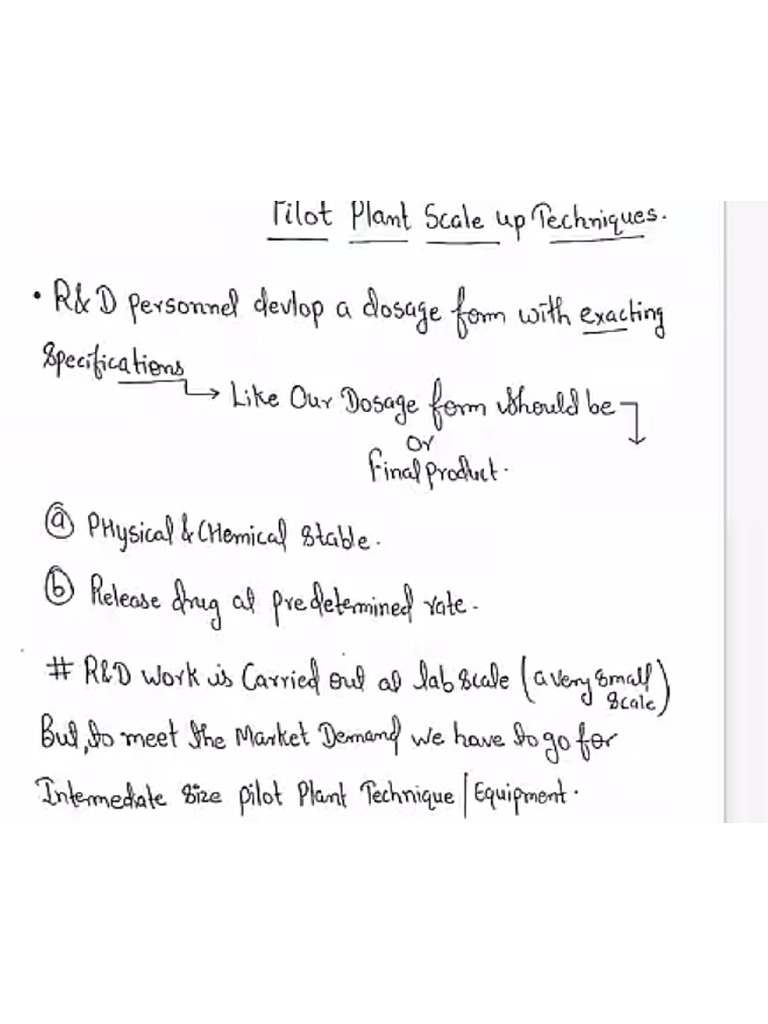 Pilot Plant Scale up Techniques.
• R&D personnel devlop a dosage form with exacting
Specifications
→ Like Our Dosage form should be
or
final product.
ⓐ PHysical & CHemical stable.
ⓑ Release drug at predetermined rate.
# R&D work is Carried out at lab scale (a very small scale)
But, to meet the Market Demand we have to go for
Intermediate size pilot Plant Technique | Equipment.